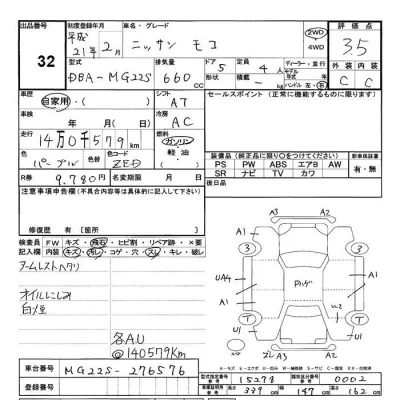 出品番号 初度登録年月 車名・グレード 評価点
32 平成21年2月 ニッサン モコ 2WD 4WD 3.5
型式 排気量 ドア 定員 ディーラー・並行
DBA-MG22S 660cc 5 4人 モデル 年式
形状 積載 ハンドル 左・右 外装 内装
- kg C C
車歴 自家用・( ) シフト AT セールスポイント(正常に機能するもののみに限る)
車検 年 月 日 冷房 AC
走行 14万0千579km 燃料 ガソリン 軽油 ( )
色 パープル 色替 色コード ZED
装備品(純正品に限り○をつけてください) 新車保証書
PS PW ABS エアB AW 有・無
SR ナビ TV カワ
R券 9,780円 名変期限 月 日 後日品
注意事項申告欄(不具合内容を具体的に記入して下さい)
修復歴 有 [箇所 ]
検査員記入欄 FW キズ・飛石・ヒビ割・リペア跡・×要
内装 キズ・汚レ・コゲ・穴・スレ・キレ・破レ
アームレストヘタリ
オイルにじみ
白煙
各AU
@140579km
A1 A3 A2
A1 3 3 A1
UA4 A1
U1 U1
A3 A2
車台番号 MG22S-276576
登録番号
型式指定番号 15278 類別区分番号 0002
長さ 339 幅 147 高さ 162